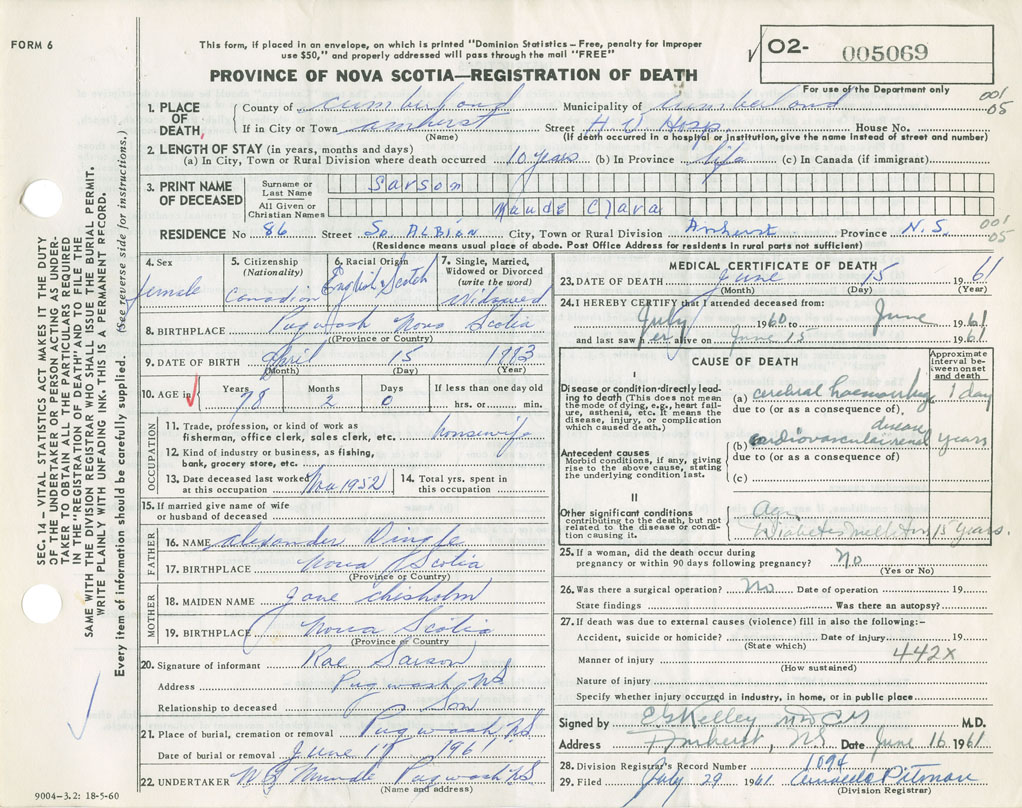 FORM 6
This form, if placed in an envelope, on which is printed "Dominion Statistics – Free, penalty for improper
use $50," and properly addressed will pass through the mail "FREE"
02- 005069
For use of the Department only
PROVINCE OF NOVA SCOTIA—REGISTRATION OF DEATH
001
05
1. PLACE OF DEATH, County of Cumberland Municipality of Cumberland
If in City or Town Amherst Street H V Hosp. House No.
(Name) (If death occurred in a hospital or institution, give the name instead of street and number)
2. LENGTH OF STAY (in years, months and days)
(a) In City, Town or Rural Division where death occurred 10 years (b) In Province life (c) In Canada (if immigrant)
3. PRINT NAME OF DECEASED
Surname or Last Name Sarson
All Given or Christian Names Maude Clara
RESIDENCE No 86 Street So ALBION City, Town or Rural Division Amherst Province N.S. 001
05
(Residence means usual place of abode. Post Office Address for residents in rural parts not sufficient)
4. Sex female
5. Citizenship (Nationality) Canadian
6. Racial Origin English & Scotch
7. Single, Married, Widowed or Divorced (write the word) Widowed
8. BIRTHPLACE Pugwash Nova Scotia
(Province or Country)
9. DATE OF BIRTH April 15
(Month) (Day) (Year)
10. AGE in Years 78 Months 2 Days 0 If less than one day old
hrs. or min.
OCCUPATION
11. Trade, profession, or kind of work as
fisherman, office clerk, sales clerk, etc. housewife
12. Kind of industry or business, as fishing,
bank, grocery store, etc.
13. Date deceased last worked at this occupation Nov 1952
14. Total yrs. spent in this occupation
15. If married give name of wife
or husband of deceased
FATHER
16. NAME Alexander Dingle
17. BIRTHPLACE Nova Scotia
(Province or Country)
MOTHER
18. MAIDEN NAME Jane Chisholm
19. BIRTHPLACE Nova Scotia
(Province or Country)
20. Signature of informant Rae Sarson
Address Pugwash NS
Relationship to deceased Son
21. Place of burial, cremation or removal Pugwash, NS
Date of burial or removal June 17 1961
22. UNDERTAKER Pugwash NS
(Name and address)
9004-3.2: 18-5-60
MEDICAL CERTIFICATE OF DEATH
23. DATE OF DEATH June 15 1961
(Month) (Day) (Year)
24. I HEREBY CERTIFY that I attended deceased from:
July 1960 to June 1961
and last saw her alive on June 15 1961
CAUSE OF DEATH
Approximate interval between onset and death
I
Disease or condition directly leading to death (This does not mean the mode of dying, e.g., heart failure, asthenia, etc. It means the disease, injury, or complication which caused death.)
(a) cerebral haemorrhage 1 day
due to (or as a consequence of).
Antecedent causes
Morbid conditions, if any, giving rise to the above cause, stating the underlying condition last.
(b) cardiovascular renal disease years
due to (or as a consequence of)
(c)
II
Other significant conditions contributing to the death, but not related to the disease or condition causing it.
Age
Diabetes mellitus 15 years.
25. If a woman, did the death occur during
pregnancy or within 90 days following pregnancy? No
(Yes or No)
26. Was there a surgical operation? No Date of operation 19
State findings Was there an autopsy?
27. If death was due to external causes (violence) fill in also the following:-
Accident, suicide or homicide? Date of injury 19
(State which)
442X
Manner of injury
(How sustained)
Nature of injury
Specify whether injury occurred in industry, in home, or in public place
Signed by E G Kelley MDCM M.D.
Address Amherst, NS Date June 16 1961
28. Division Registrar's Record Number 1094
29. Filed July 29 1961 Pitman
(Division Registrar)
SEC. 14 – VITAL STATISTICS ACT MAKES IT THE DUTY
OF THE UNDERTAKER OR PERSON ACTING AS UNDER-
TAKER TO OBTAIN ALL THE PARTICULARS REQUIRED
IN THE "REGISTRATION OF DEATH" AND TO FILE THE
SAME WITH THE DIVISION REGISTRAR WHO SHALL ISSUE THE BURIAL PERMIT.
WRITE PLAINLY WITH UNFADING INK. THIS IS A PERMANENT RECORD.
Every item of information should be carefully supplied. (See reverse side for instructions.)